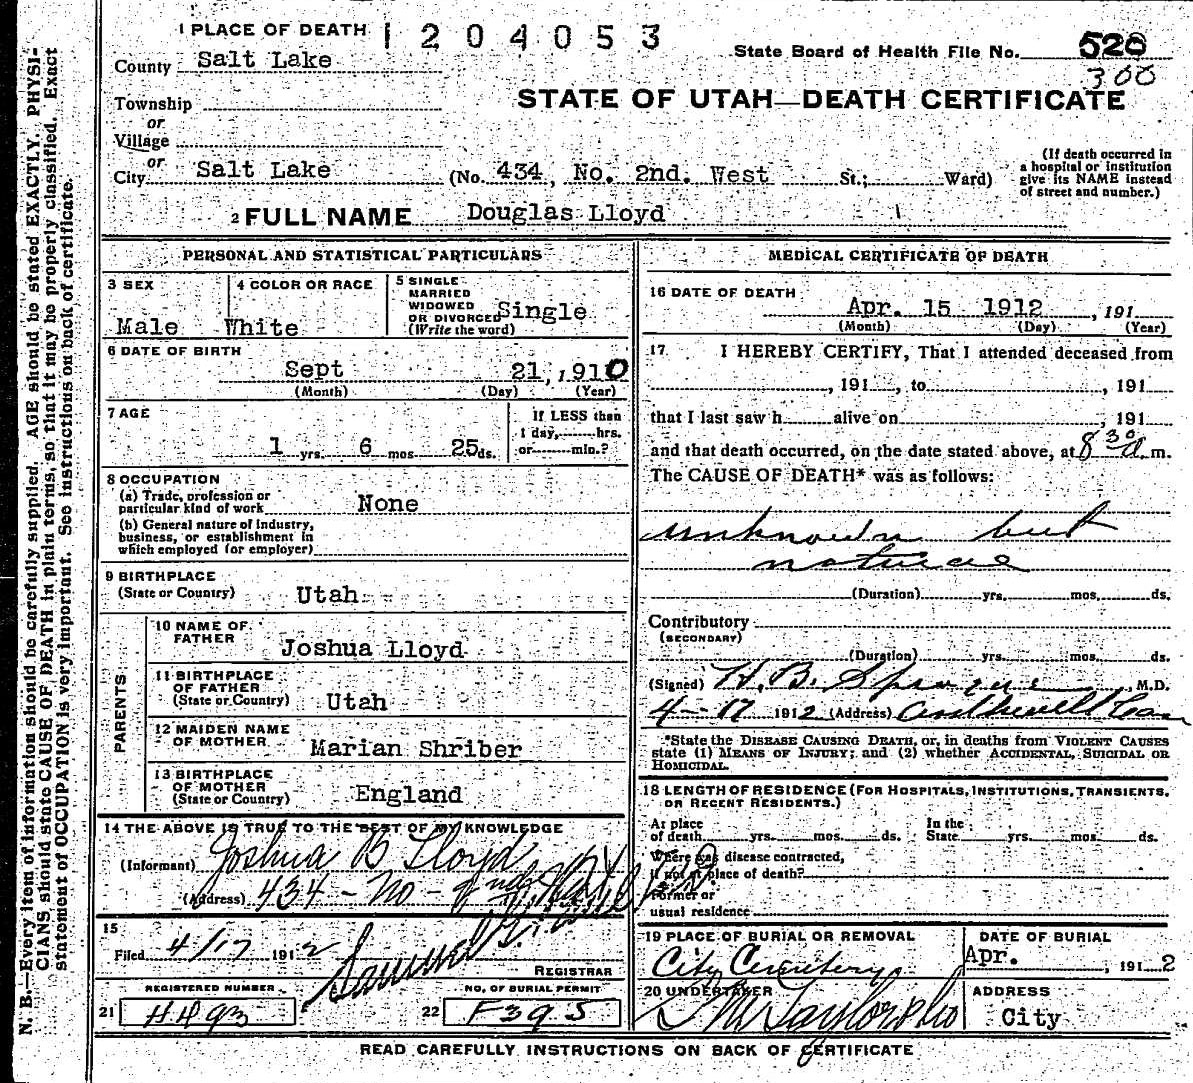 1 PLACE OF DEATH 1204053
State Board of Health File No. 520
300
County Salt Lake
STATE OF UTAH—DEATH CERTIFICATE
Township
or
Village
or
City Salt Lake (No. 434, No. 2nd. West St.; Ward)
(If death occurred in a hospital or institution give its NAME instead of street and number.)
2 FULL NAME Douglas Lloyd
PERSONAL AND STATISTICAL PARTICULARS
3 SEX Male
4 COLOR OR RACE White
5 SINGLE MARRIED WIDOWED OR DIVORCED (Write the word) Single
6 DATE OF BIRTH
Sept 21, 1910
(Month) (Day) (Year)
7 AGE
1 yrs. 6 mos 25 ds.
If LESS than
1 day, hrs.
or min.?
8 OCCUPATION
(a) Trade, profession or
particular kind of work None
(b) General nature of industry,
business, or establishment in
which employed (or employer)
9 BIRTHPLACE
(State or Country) Utah
PARENTS
10 NAME OF
FATHER Joshua Lloyd
11 BIRTHPLACE
OF FATHER
(State or Country) Utah
12 MAIDEN NAME
OF MOTHER Marian Shriber
13 BIRTHPLACE
OF MOTHER
(State or Country) England
14 THE ABOVE IS TRUE TO THE BEST OF MY KNOWLEDGE
(Informant) Joshua B Lloyd
(Address) 434 - No - 2nd West
15
Filed 4/17 1912
REGISTRAR
REGISTERED NUMBER
21 H493
NO. OF BURIAL PERMIT
22 F395
MEDICAL CERTIFICATE OF DEATH
16 DATE OF DEATH
Apr. 15 1912, 191
(Month) (Day) (Year)
17 I HEREBY CERTIFY, That I attended deceased from
, 191 , to , 191
that I last saw h alive on , 191
and that death occurred, on the date stated above, at 8 30 a m.
The CAUSE OF DEATH* was as follows:
unknown but
natural
(Duration) yrs. mos. ds.
Contributory
(SECONDARY)
(Duration) yrs. mos. ds.
(Signed) H. B. Sprague, M.D.
4-17 1912 (Address)
*State the DISEASE CAUSING DEATH, or, in deaths from VIOLENT CAUSES
state (1) MEANS OF INJURY; and (2) whether ACCIDENTAL, SUICIDAL OR
HOMICIDAL.
18 LENGTH OF RESIDENCE (FOR HOSPITALS, INSTITUTIONS, TRANSIENTS,
OR RECENT RESIDENTS.)
At place
of death yrs. mos. ds.
In the
State yrs. mos. ds.
Where was disease contracted,
if not at place of death?
Former or
usual residence
19 PLACE OF BURIAL OR REMOVAL
City Cemetery
DATE OF BURIAL
Apr. , 1912
20 UNDERTAKER
ADDRESS
City
READ CAREFULLY INSTRUCTIONS ON BACK OF CERTIFICATE
N. B.—Every item of information should be carefully supplied. AGE should be stated EXACTLY. PHYSI-
CIANS should state CAUSE OF DEATH in plain terms, so that it may be properly classified. Exact
statement of OCCUPATION is very important. See instructions on back of certificate.